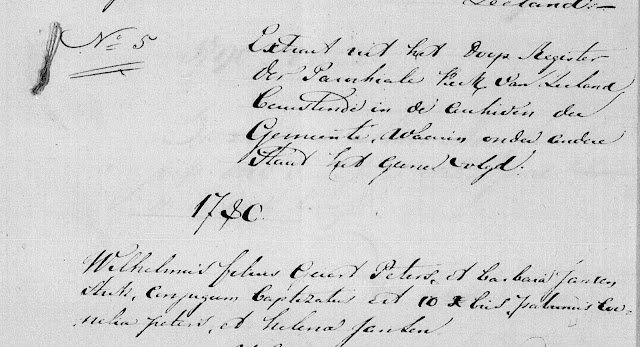 Zeeland.
No 5
Extract uit het Doop Register
der Parochiale Kerk van Zeeland,
berustende in de archiven der
Gemeente, Waarin onder andere
Staat het gene volgt.
1780.
Wilhelmus filius Geert Peters, et barbara Jansen
conjugum baptizatus est 10 xbris, patrinis Cor-
nelia peters, et helena Jansen.